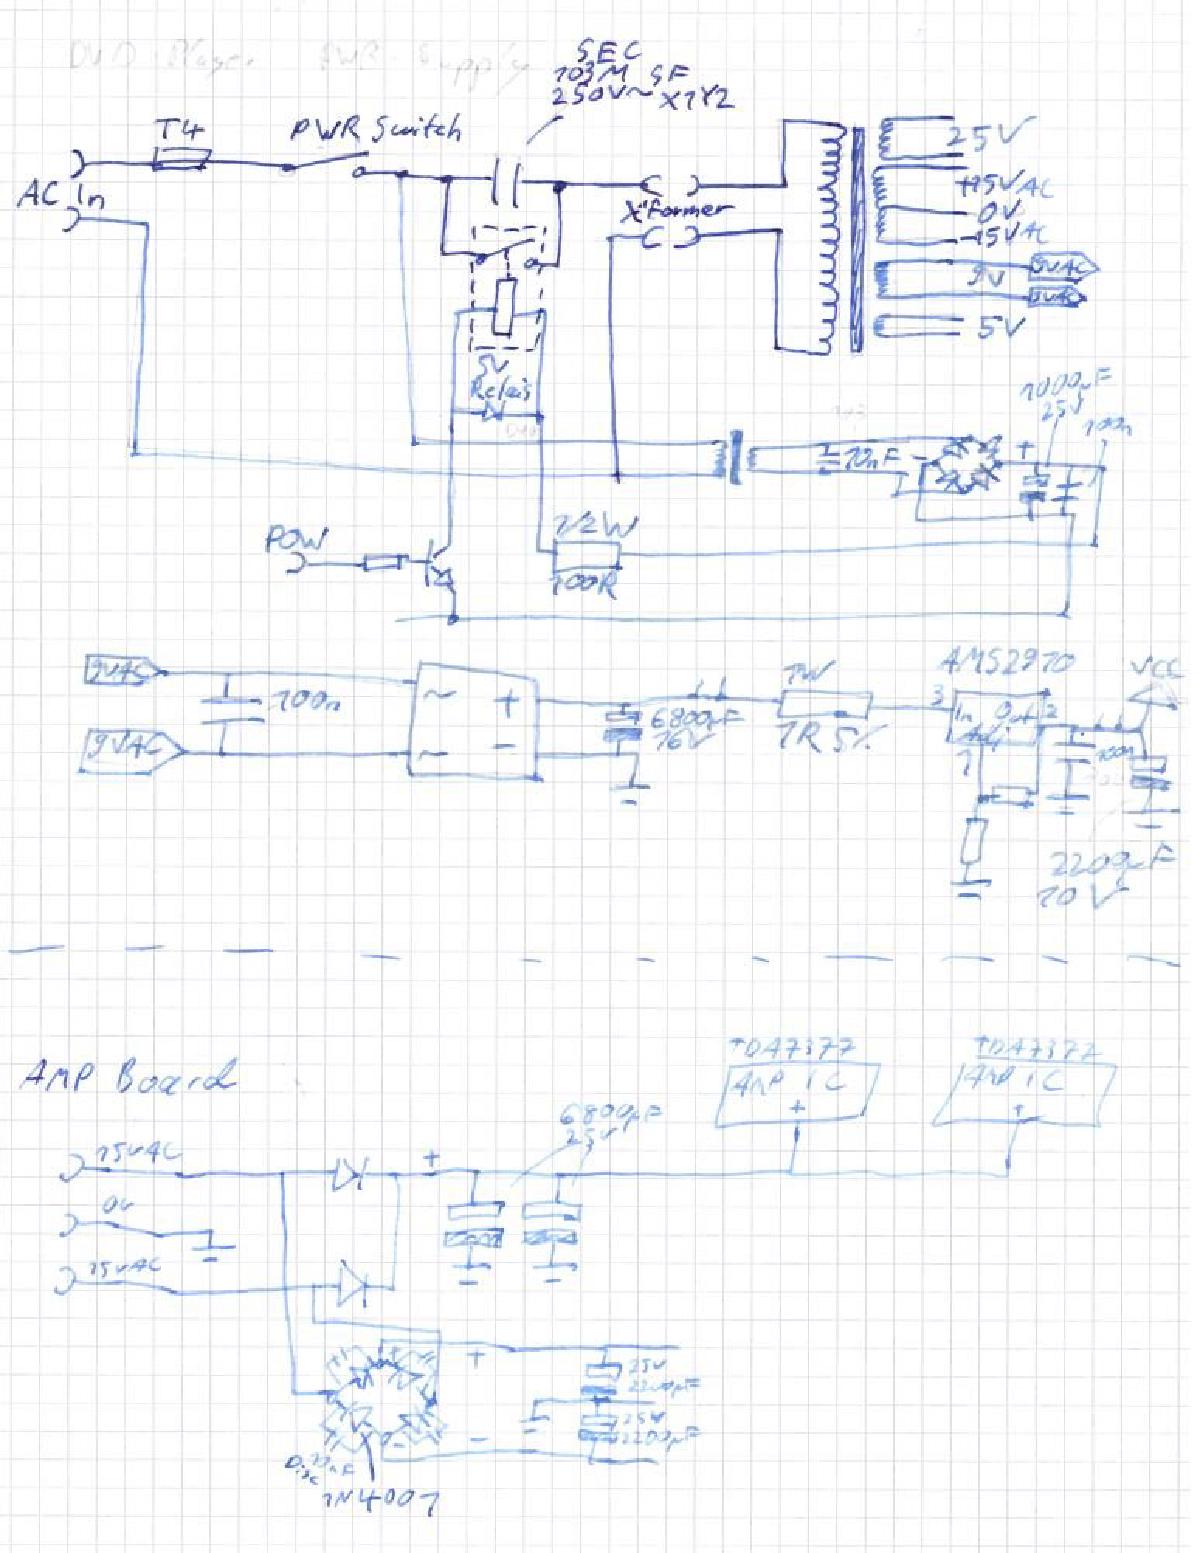 DVD Player PWR-Supply
SEC
103M SF
250V~ X1Y2
T4
PWR Switch
AC In
X'former
25V
+15VAC
0V
-15VAC
9V
9VAC
9VAC
5V
5V
Relais
1000µF
25V
100n
10nF
- +
POW
1/2W
100R
9VAC
100n
9VAC
~ +
~ -
6800µF
16V
1W
1R 5%
AMS2910
3
In Out
2
Adj
1
VCC
100n
2200µF
10V
AMP Board
TDA7377
AMP IC
+
TDA7377
AMP IC
+
15VAC
0V
15VAC
+
6800µF
25V
+
25V
2200µF
25V
2200µF
-
Disc
1N4007